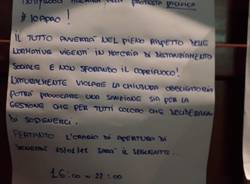 PROTESTA PACIFICA
# IOAPRO!
IL TUTTO AVVERRA' NEL PIENO RISPETTO DELLE
NORMATIVE VIGENTI IN MATERIA DI DISTANZIAMENTO
SOCIALE E NON SFORANDO IL COPRIFUOCO!
NATURALMENTE VIOLARE LA CHIUSURA OBBLIGATORIA
POTRA' PROVOCARE UNA SANZIONE SIA PER LA
GESTIONE CHE PER TUTTI COLORO CHE DECIDERANNO
DI SOSTENERCI.
PERTANTO L'ORARIO DI APERTURA DI
SARA' IL SEGUENTE...
16:00 - 22:00